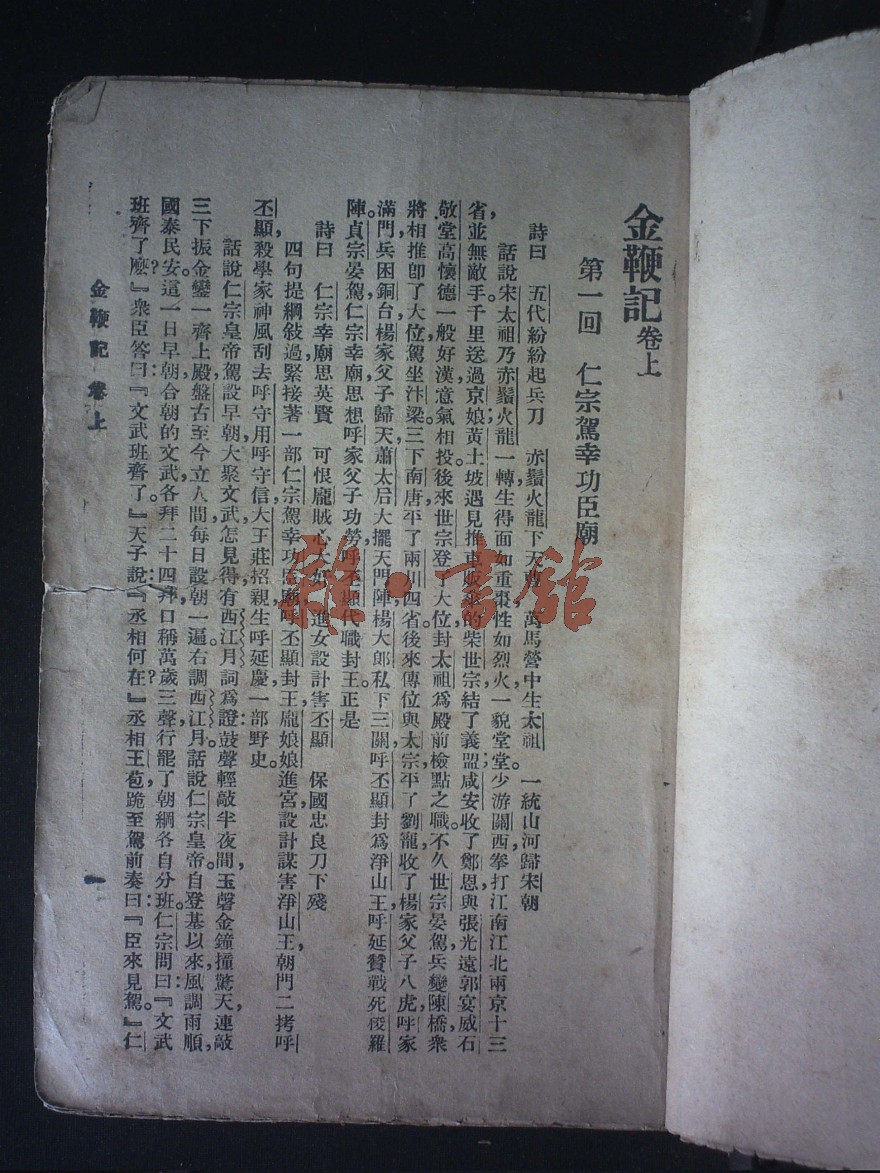 金鞭記卷上
第一回　仁宗駕幸功臣廟
詩曰　五代紛紛起兵刀　赤鬚火龍下天曹　萬馬營中生太祖　一統山河歸宋朝
話說宋太祖乃赤鬚火龍一轉生得面如重棗性如烈火一貌堂堂少游關西拳打江南江北兩京十三
省並無敵手千里送過京娘黃土坡遇見推車販傘的柴世宗結了義盟咸安收了鄭恩與張光遠郭宴威石
敬堂高懷德一般好漢意氣相投後來世宗登了大位封太祖爲殿前檢點之職不久世宗晏駕兵變陳橋衆
將相推卽了大位駕坐汴梁三下南唐平了兩川四省後來傳位與太宗平了劉寵收了楊家父子八虎呼家
滿門兵困銅台楊家父子歸天蕭太后大擺天門陣楊大郎私下三關呼丕顯封爲淨山王呼延贊戰死稜羅
陣貞宗晏駕仁宗幸廟思想呼家父子功勞呼丕顯代職封王正是
詩曰　仁宗幸廟思英賢　可恨龐賊心太奸　進女設計害丕顯　保國忠良刀下殘
四句提綱敍過緊接著一部仁宗駕幸功臣廟呼丕顯封王龐娘娘進宮設計謀害淨山王朝門二拷呼
丕顯殺學家神風刮去呼守用呼守信大王莊招親生呼延慶一部野史。
話說仁宗皇帝駕設早朝大聚文武怎見得有西江月詞爲證：鼓聲輕敲半夜間，玉磬金鐘撞驚天連敲
三下振金鑾一齊上殿盤古至今立人間每日設朝一遍。右調西江月。話說仁宗皇帝自登基以來風調雨順，
國泰民安。這一日早朝合朝的文武各拜二十四拜，口稱萬歲三聲，行罷了朝綱各自分班。仁宗問曰：『文武
班齊了麼？』衆臣答曰：『文武班齊了。』天子說：『丞相何在？』丞相王苞跪至駕前奏曰：『臣來見駕。』仁
金鞭記　卷上
一
雜·書館